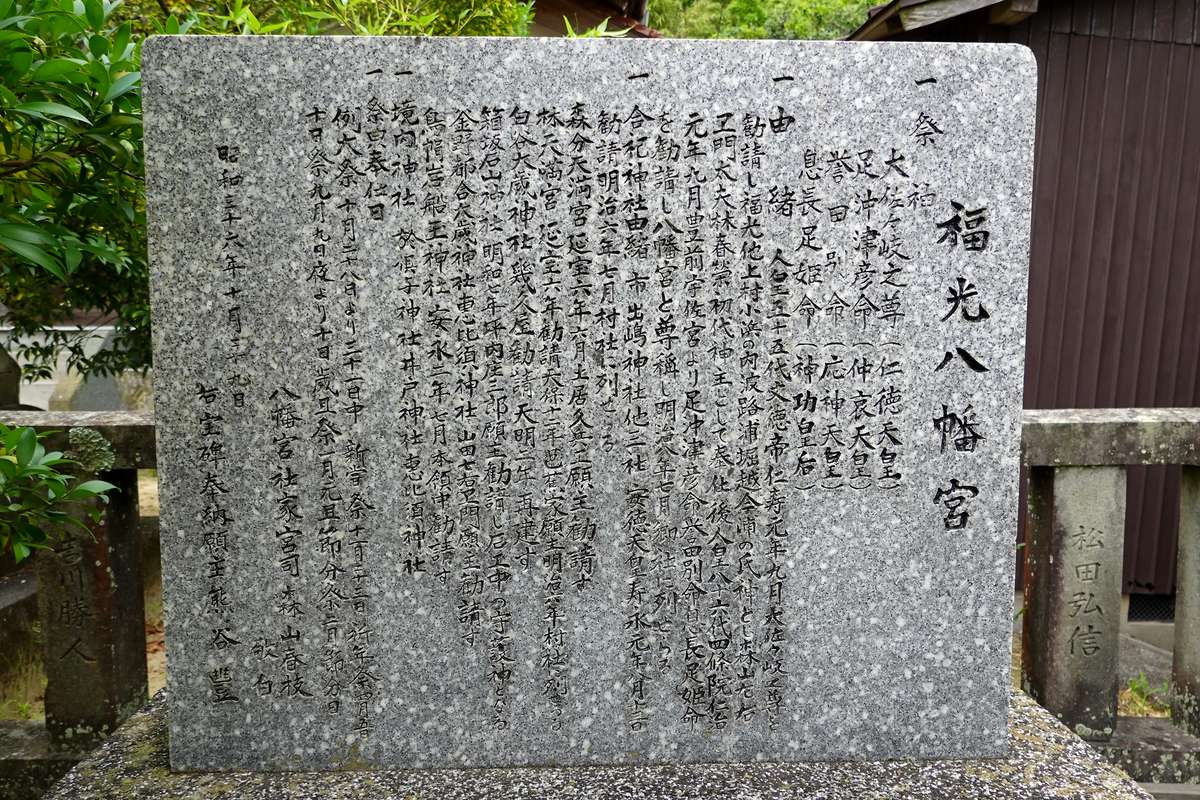 福光八幡宮
一祭神
大佐々岐之尊(仁徳天皇)
足沖津彦命(仲哀天皇)
誉田別命(応神天皇)
息長足姫命(神功皇后)
一由緒 人皇五十五代文徳帝仁寿元年九月大佐々岐之尊を
勧請し福光他上村小浜の内波路浦堀越今浦の氏神とし森山左右
ヱ門太夫林春崇初代神主として奉仕後人皇八十六代四條院仁治
元年九月豊前宇佐宮より足沖津彦命誉田別命息長足姫命
を勧請し八幡宮と尊称し明治八年七月郷社に列せらる
一合祀神社由緒 市出嶋神社他二社 安徳天皇寿永元年八月上旬
勧請明治六年七月村社に列せらる
森分天満宮延宝六年六月土居久兵ヱ願主勧請す
林天満宮延宝六年勧請 明治六年村社に列せらる
白谷大歳神社幾久屋勧請天明二年再建す
箱坂石山神社明和七年坪内庄三郎願主勧請し石工中の守護神となる
金野郷合大歳神社恵比須神社山田七右ヱ門願主勧請す
烏帽岩船玉神社安永二年七月本領中勧請す
一境内神社 於倶子神社井戸神社恵比須神社
一祭典奉仕日
例大祭十月二十八日より三十一日中 新嘗祭十一月二十三日 祈年祭四月
十日祭九月九日夜より十日 歳旦祭一月元旦 節分祭二月節分日
昭和三十六年十月三十九日
八幡宮社家宮司森山春枝
敬白
右宝碑奉納願主熊谷豊
松田弘信
吉川勝人